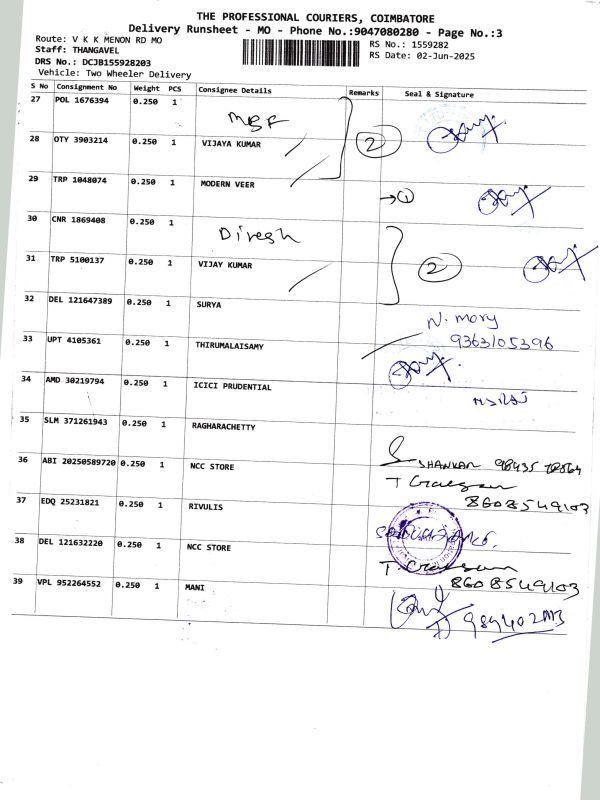 THE PROFESSIONAL COURIERS, COIMBATORE
Delivery Runsheet - MO - Phone No.:9047080280 - Page No.:3
Route: V K K MENON RD MO
RS No.: 1559282
Staff: THANGAVEL
RS Date: 02-Jun-2025
DRS No.: DCJB155928203
Vehicle: Two Wheeler Delivery
S No Consignment No Weight PCS Consignee Details Remarks Seal & Signature
27 POL 1676394 0.250 1
28 OTY 3903214 0.250 1 VIJAYA KUMAR 2
29 TRP 1048074 0.250 1 MODERN VEER →1
30 CNR 1869408 0.250 1 Diresh
31 TRP 5100137 0.250 1 VIJAY KUMAR 2
32 DEL 121647389 0.250 1 SURYA N. mory
9363105396
33 UPT 4105361 0.250 1 THIRUMALAISAMY
34 AMD 30219794 0.250 1 ICICI PRUDENTIAL
35 SLM 371261943 0.250 1 RAGHARACHETTY
SHANKAR
36 ABI 20250589720 0.250 1 NCC STORE
8608549103
37 EDQ 25231821 0.250 1 RIVULIS
38 DEL 121632220 0.250 1 NCC STORE
8608549103
39 VPL 952264552 0.250 1 MANI